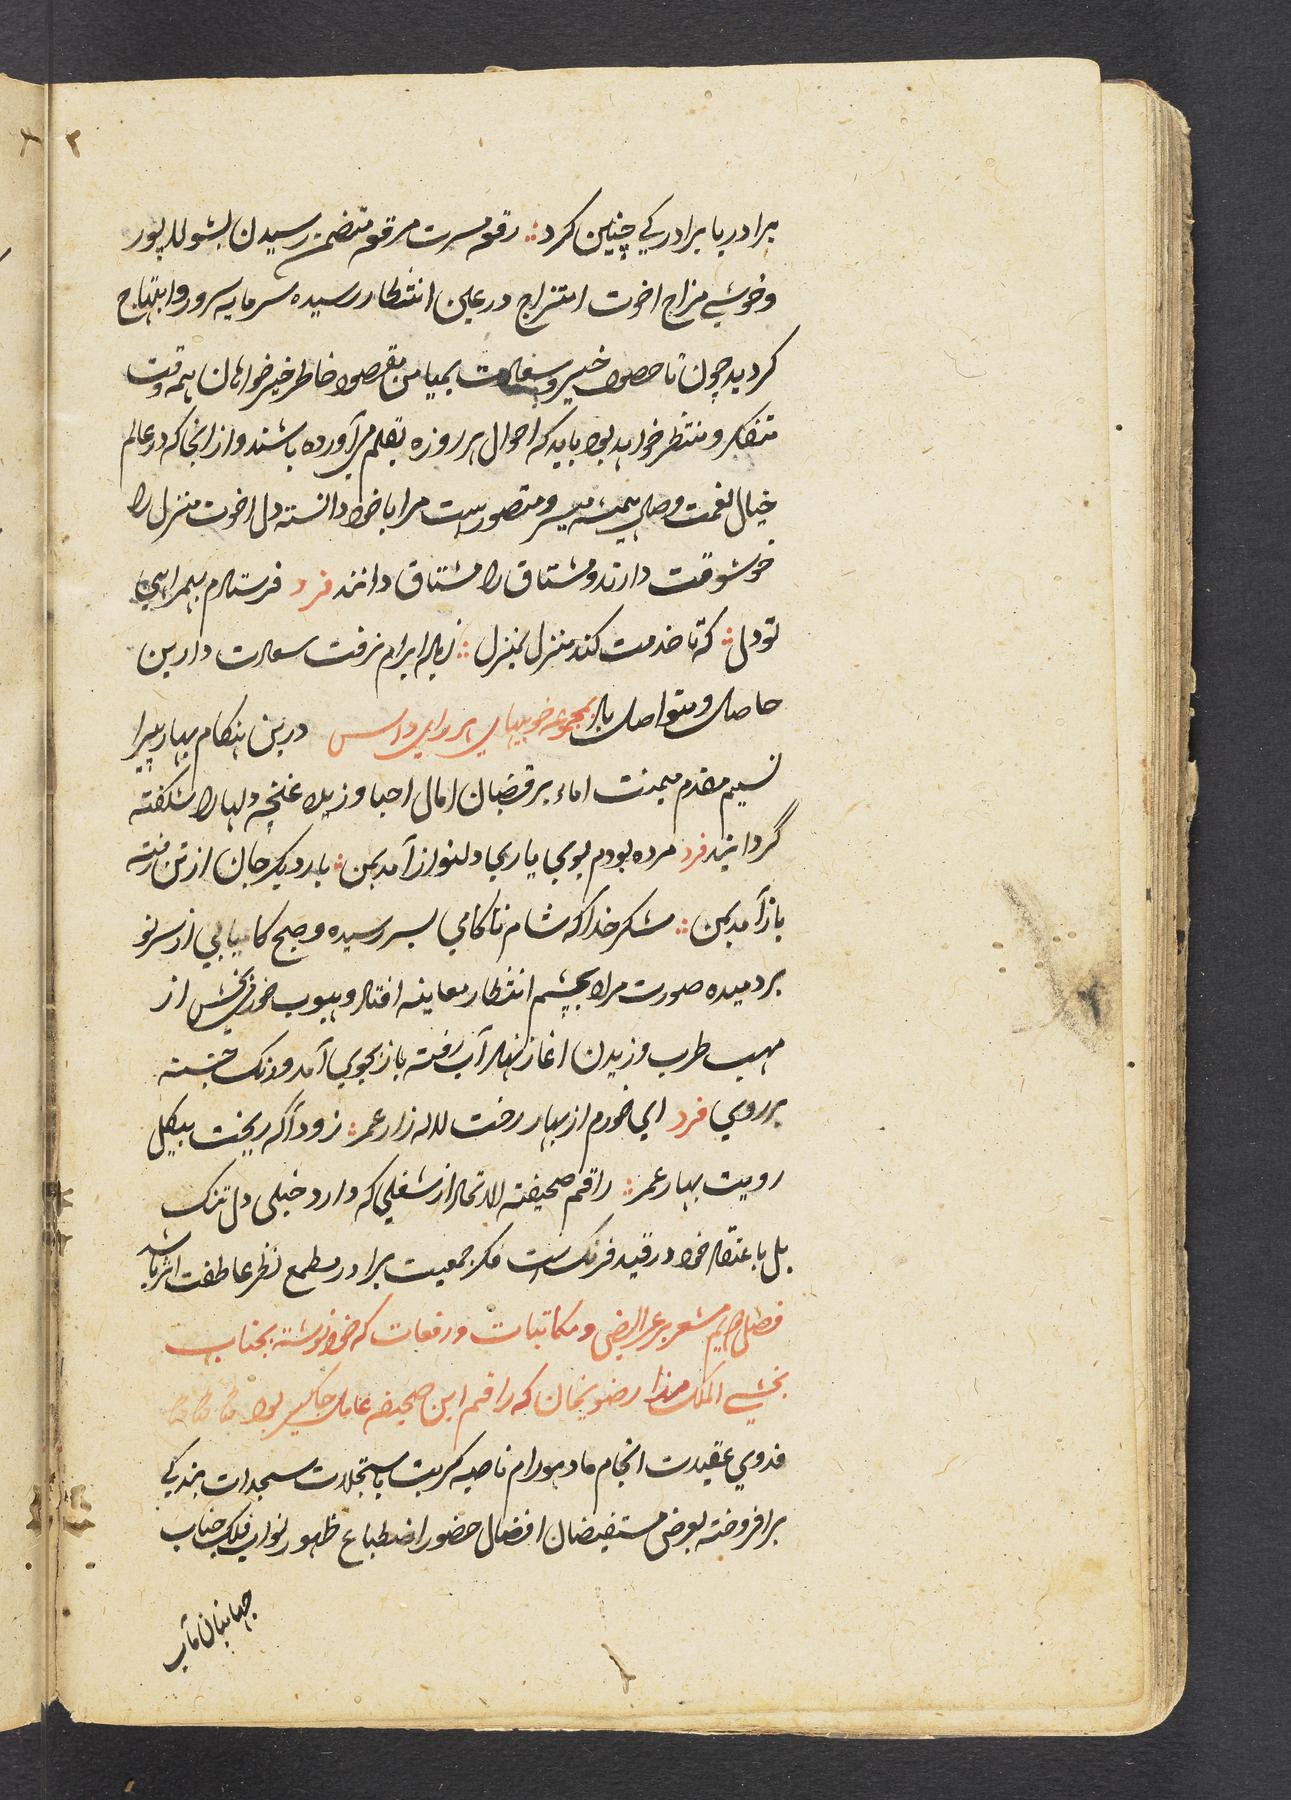 برادر با برادر کی چنین کرد ؞ رقعه مسرت مرقعه متضمن رسیدن بشولاپور
وخوشی مزاج اخوت امتزاج در عین انتظار رسیده سرمایه سرور وابتهاج
کردید چون تا حصول خیر و سعادت بمیامن مقصود خاطر خیرخواهان همه وقت
متفکر و منتظر خواهد بود باید که احوال هر روزه بقلم می آورده باشند و از انجا که در عالم
خیال نعمت وصال همیشه میسر و متصور است مرا با خود دانسته دل اخوت منزل را
خوشوقت دارند و مشتاق را مشتاق دانند فرد فرستادم بهمراهی
تو دل ؞ که تا خدمت کند منزل بمنزل ؞ زیاده ابرام نرفت سعادت دارین
حاصل و متواصل باد بمجموعه خوبیهای داس درین هنکام بهار پیرا
نسیم مقدم میمنت اماء بر قضبان امال احبا وزیده غنچه دلها را شکفته
گردانید فرد مرده بودم بوی یاری دلنواز آمد بمن ؞ بار دیکر جان از تن رفته
باز آمد بمن ؞ شکر خدا که شام ناکامی بسر رسیده و صبح کامیابی از سر نو
بر دمیده صورت مراد بچشم انتظار معاینه افتاد و هبوب از
مهب طرب وزیدن اغاز نهاد آب رفته باز بجوی آمد و رنک جسته
بر روی فرد ای خورم از بهار رخت لاله زار عمر ؞ زود آ که ریخت بیکل
رویت بهار عمر ؞ راقم صحیفته الاتحاد از شغلی که دارد خیلی دل تنک
بل باعتقاد خود در قید فرنک است مکر جمعیت برادر مطمع نظر عاطفت اثر باشد
فصل مشعر بر عرایض و مکاتبات و رقعات که خود نوشته بجناب
بخشی الملک مرزا رضویخان که راقم این صحیفه عامل جاکیر بود
فدوی عقیدت انجام مادهورام ناصیه کمربت باستجلات سجدات بندکی
بر افروخته بعرض مستفیضان افضال حضور اضطباع ظهور نواب فلک جناب
جهانبان مآب